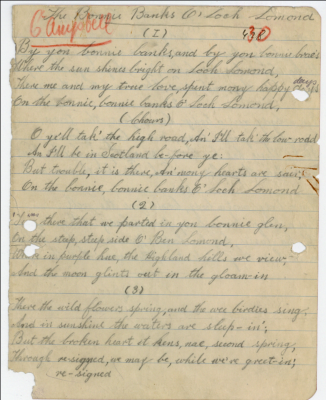 The Bonnie Banks O' Loch Lomond
Campbell
(1)
By yon bonnie banks, and by yon bonnie braes
Where the sun shines bright on Loch Lomond,
There me and my true love, spent mony happy days
On the bonnie, bonnie banks O' Loch Lomond,
(Chorus)
O ye'll tak' the high road, An' I'll tak' the low road
An I'll be in Scotland be-fore ye:
But trouble, it is there, An' many hearts are sair,
On the bonnie, bonnie banks O' Loch Lomond
(2)
there that we parted in yon bonnie glen,
On the steep, steep side O' Ben Lomond,
Where in purple hue, the Highland hills we view,
And the moon glints out in the gloam-in
(3)
There the wild flowers spring, and the wee birdies sing,
And in sunshine the waters are sleep-in';
But the broken heart it kens, nae, second spring,
Through re-signed, we may be, while we're greet-in';
re-signed